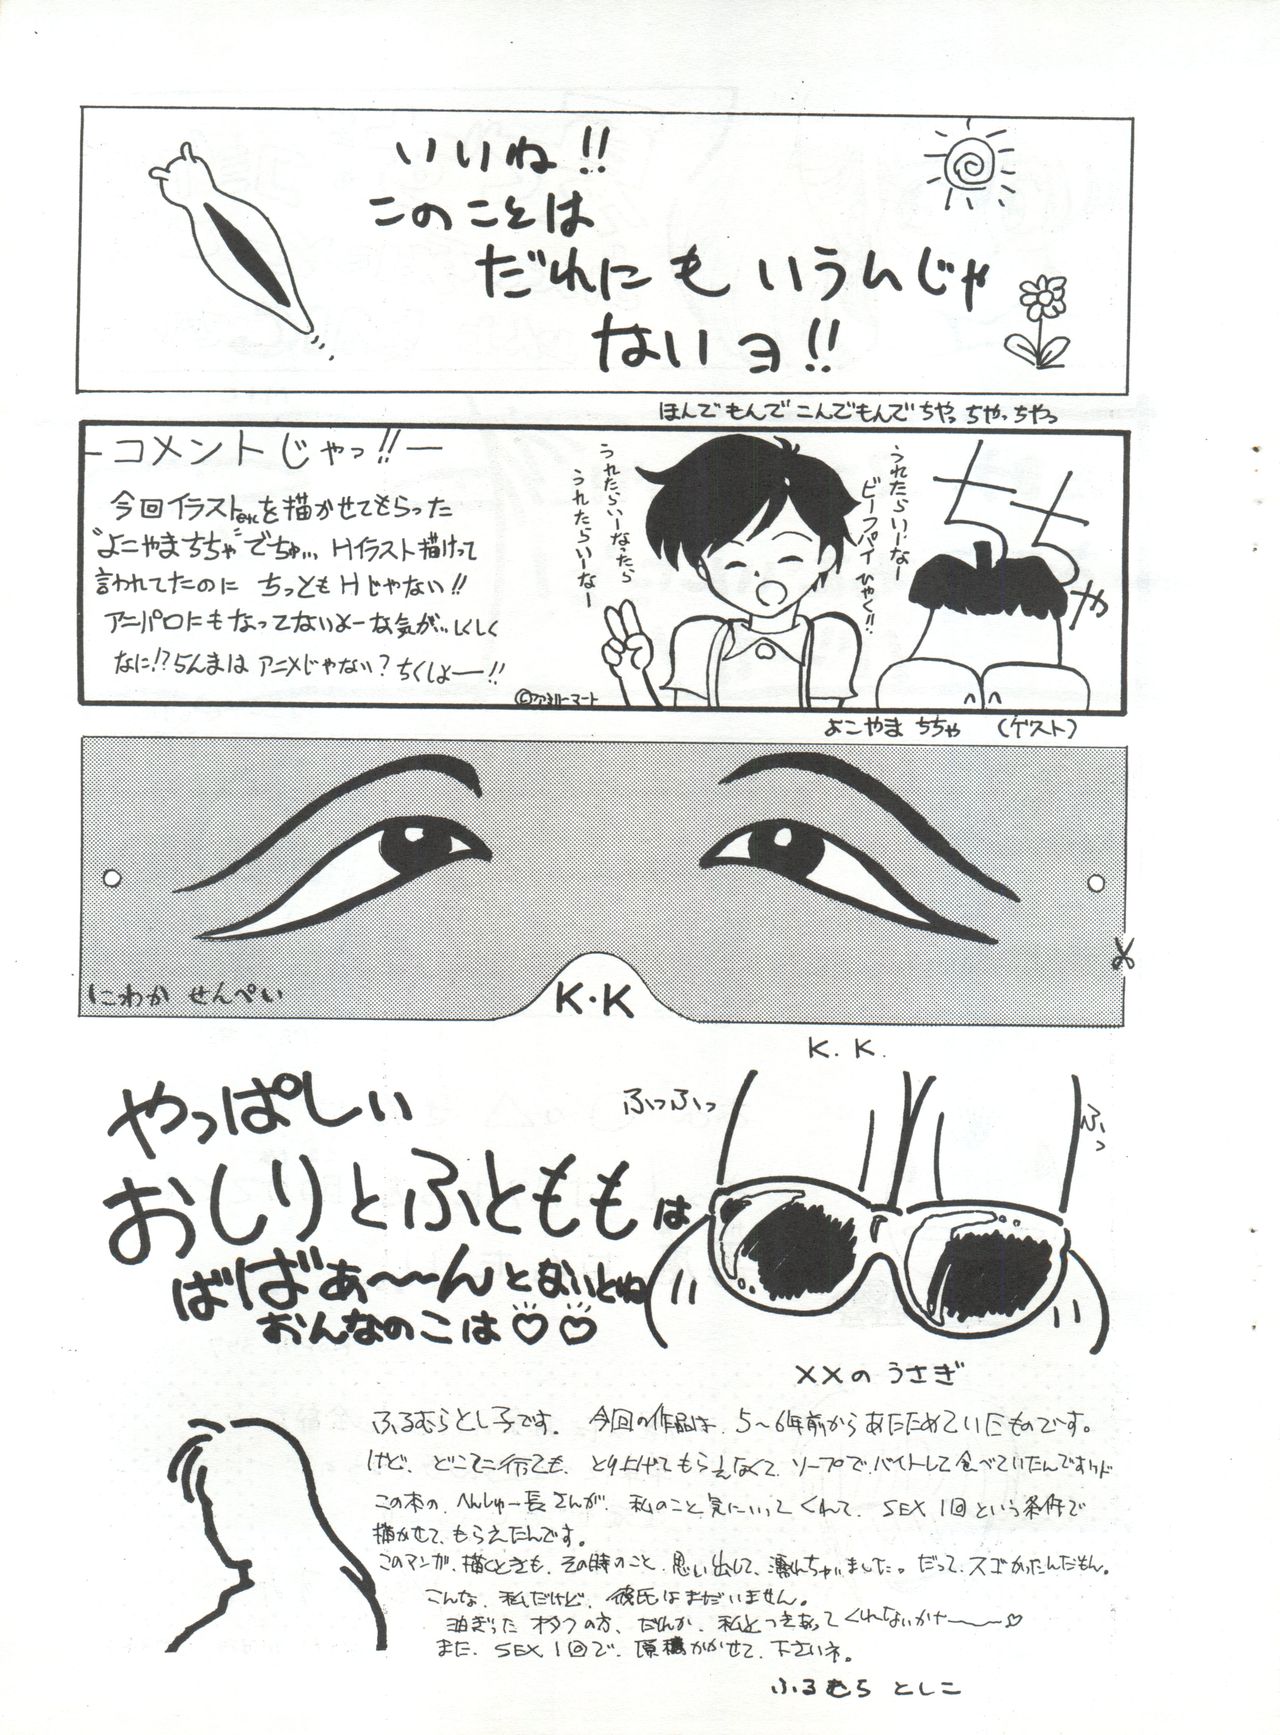 いいね!!
このことは
だれにもいうんじゃ
ないヨ!!
ほんでもんでこんでもんでちゃっちゃっちゃっ
コメントじゃっ!!
今回イラストetcを描かせてもらった
"よこやまちちゃ"でちゅ… Hイラスト描けって
言われてたのに ちっともHじゃない!!
アニパロにもなってないよーな気が…しくしく
なに!?らんまは アニメじゃない? ちくしょー!!
うれたらいーなったら
うれたらいーなー
うれたらいーなー
ビーフパイひゃく!!
ちちゃ
©ファミリーマート
よこやま ちちゃ (ゲスト)
にわか せんぺい
K・K
K.K.
やっぱしぃ
おしりとふとももは
ばばぁ〜〜んとないとね
おんなのこは♡♡
ふっふっ
ふっ
××の うさぎ
ふるむらとし子です。 今回の作品は、5〜6年前からあたためていたものです。
けど、どこに行ても、とり上げてもらえなくて、ソープで、バイトして食べていたんですけど
この本の、へんしゅー長さんが、私のこと気にいってくれて、SEX1回という条件で
描かせて、もらえたんです。
このマンガ、描くときも、その時のこと、思い出して、濡んちゃいました。だって、スゴかったんだもん。
こんな、私だけど、彼氏はまだいません。
オタクの方、だれか、私とつきあってくれないかナ〜〜♡
また、SEX1回で、原稿かかせて、下さいネ。
ふるむら としこ